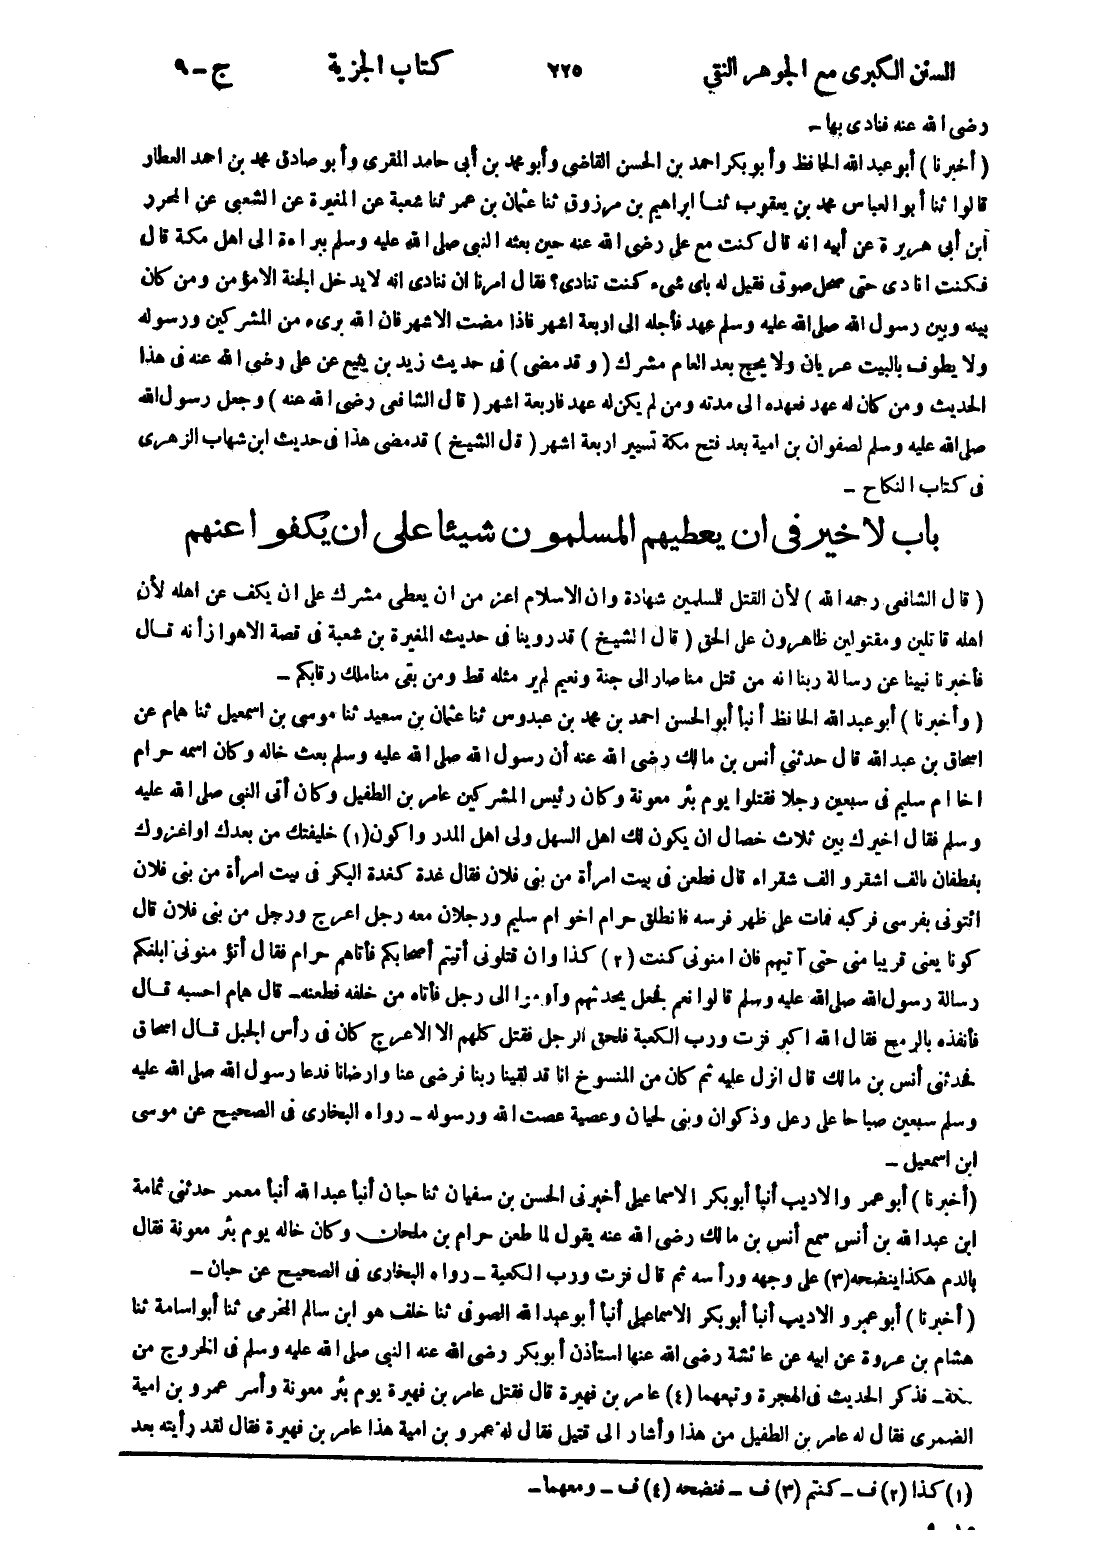 السنن الكبرى مع الجوهر النقي ٢٢٥ كتاب الجزية ج – ٩
رضى الله عنه فنادى بها –
( أخبرنا ) أبو عبد الله الحافظ وأبو بكر احمد بن الحسن القاضي وأبو محمد بن أبى حامد المقرى وأبو صادق محمد بن احمد العطار
قالوا ثنا أبو العباس محمد بن يعقوب ثنا ابراهيم بن مرزوق ثنا عثمان بن عمر ثنا شعبة عن المغيرة عن الشعبى عن المحرر
ابن أبي هريرة عن أبيه انه قال كنت مع علي رضى الله عنه حين بعثه النبي صلى الله عليه وسلم ببراءة الى اهل مكة قال
فكنت انادى حتى صحل صوتى فقيل له باى شىء كنت تنادى؟ فقال امرنا ان ننادى انه لا يدخل الجنة الا مؤمن ومن كان
بينه وبين رسول الله صلى الله عليه وسلم عهد فأجله الى اربعة اشهر فاذا مضت الاشهر فان الله برىء من المشركين ورسوله
ولا يطوف بالبيت عريان ولا يحج بعد العام مشرك ( وقد مضى ) فى حديث زيد بن يثيع عن على رضى الله عنه فى هذا
الحديث ومن كان له عهد فعهده الى مدته ومن لم يكن له عهد فاربعة اشهر ( قال الشافعى رضى الله عنه ) وجعل رسول الله
صلى الله عليه وسلم لصفوان بن امية بعد فتح مكة تسيير اربعة اشهر ( قال الشيخ ) قد مضى هذا فى حديث ابن شهاب الزهرى
فى كتاب النكاح –
باب لا خير فى ان يعطيهم المسلمون شيئا على ان يكفوا عنهم
( قال الشافعى رحمه الله ) لأن القتل للمسلمين شهادة وان الاسلام اعز من ان يعطى مشرك على ان يكف عن اهله لأن
اهله قاتلين ومقتولين ظاهرون على الحق ( قال الشيخ ) قد روينا فى حديث المغيرة بن شعبة فى قصة الاهواز أنه قال
فأخبرنا نبينا عن رسالة ربنا انه من قتل منا صار الى جنة ونعيم لم ير مثله قط ومن بقى منا ملك رقابكم –
( وأخبرنا ) أبو عبد الله الحافظ أنبأ أبو الحسن احمد بن محمد بن عبدوس ثنا عثمان بن سعيد ثنا موسى بن اسمعيل ثنا همام عن
اسحاق بن عبد الله قال حدثني أنس بن مالك رضى الله عنه أن رسول الله صلى الله عليه وسلم بعث خاله وكان اسمه حرام
اخا ام سليم فى سبعين رجلا فقتلوا يوم بئر معونة وكان رئيس المشركين عامر بن الطفيل وكان أتى النبي صلى الله عليه
وسلم فقال اخيرك بين ثلاث خصال ان يكون لك اهل السهل ولى اهل المدر واكون (١) خليفتك من بعدك او اغزوك
بغطفان بالف اشقر والف شقراء قال فطعن فى بيت امرأة من بنى فلان فقال غدة كغدة البكر فى بيت امرأة من بنى فلان
ائتونى بفرسى فركبه فمات على ظهر فرسه فانطلق حرام اخو ام سليم ورجلان معه رجل اعرج ورجل من بنى فلان قال
كونا يعنى قريبا منى حتى آتيهم فان امنونى كنت (٢) كذا وان قتلونى أتيتم أصحابكم فأتاهم حرام فقال أتؤمنونى ابلغكم
رسالة رسول الله صلى الله عليه وسلم قالوا نعم فجعل يحدثهم وأومزا الى رجل فأتاه من خلفه فطعنه – قال همام احسبه قال
فأنفذه بالرمح فقال الله اكبر فزت ورب الكعبة فلحق الرجل فقتل كلهم الا الاعرج كان فى رأس الجبل قال اسحاق
فحدثنى أنس بن مالك قال انزل عليه ثم كان من المنسوخ انا قد لقينا ربنا فرضى عنا وارضانا فدعا رسول الله صلى الله عليه
وسلم سبعين صباحا على رعل وذكوان وبنى لحيان وعصية عصت الله ورسوله – رواه البخارى فى الصحيح عن موسى
ابن اسمعيل –
( أخبرنا ) أبو عمر والاديب أنبأ أبوبكر الاسماعيلى أخبرنى الحسن بن سفيان ثنا حبان أنبأ عبد الله أنبأ معمر حدثنى ثمامة
ابن عبد الله بن أنس سمع أنس بن مالك رضى الله عنه يقول لما طعن حرام بن ملحان وكان خاله يوم بئر معونة فقال
بالدم هكذا ينضحه (٣) على وجهه ورأسه ثم قال فزت ورب الكعبة – رواه البخارى فى الصحيح عن حبان –
( أخبرنا ) أبو عمرو الاديب أنبأ أبوبكر الاسماعيلى أنبأ أبو عبد الله الصوفى ثنا خلف هو ابن سالم المخرمى ثنا أبو اسامة ثنا
هشام بن عروة عن ابيه عن عائشة رضى الله عنها استأذن أبوبكر رضى الله عنه النبي صلى الله عليه وسلم فى الخروج من
مكة – فذكر الحديث فى الهجرة وتبعهما (٤) عامر بن فهيرة قال فقتل عامر بن فهيرة يوم بئر معونة وأسر عمرو بن امية
الضمرى فقال له عامر بن الطفيل من هذا وأشار الى قتيل فقال له عمرو بن امية هذا عامر بن فهيرة فقال لقد رأيته بعد
(١) كذا (٢) ف – كنتم (٣) ف – فنضحه (٤) ف – ومعهما –